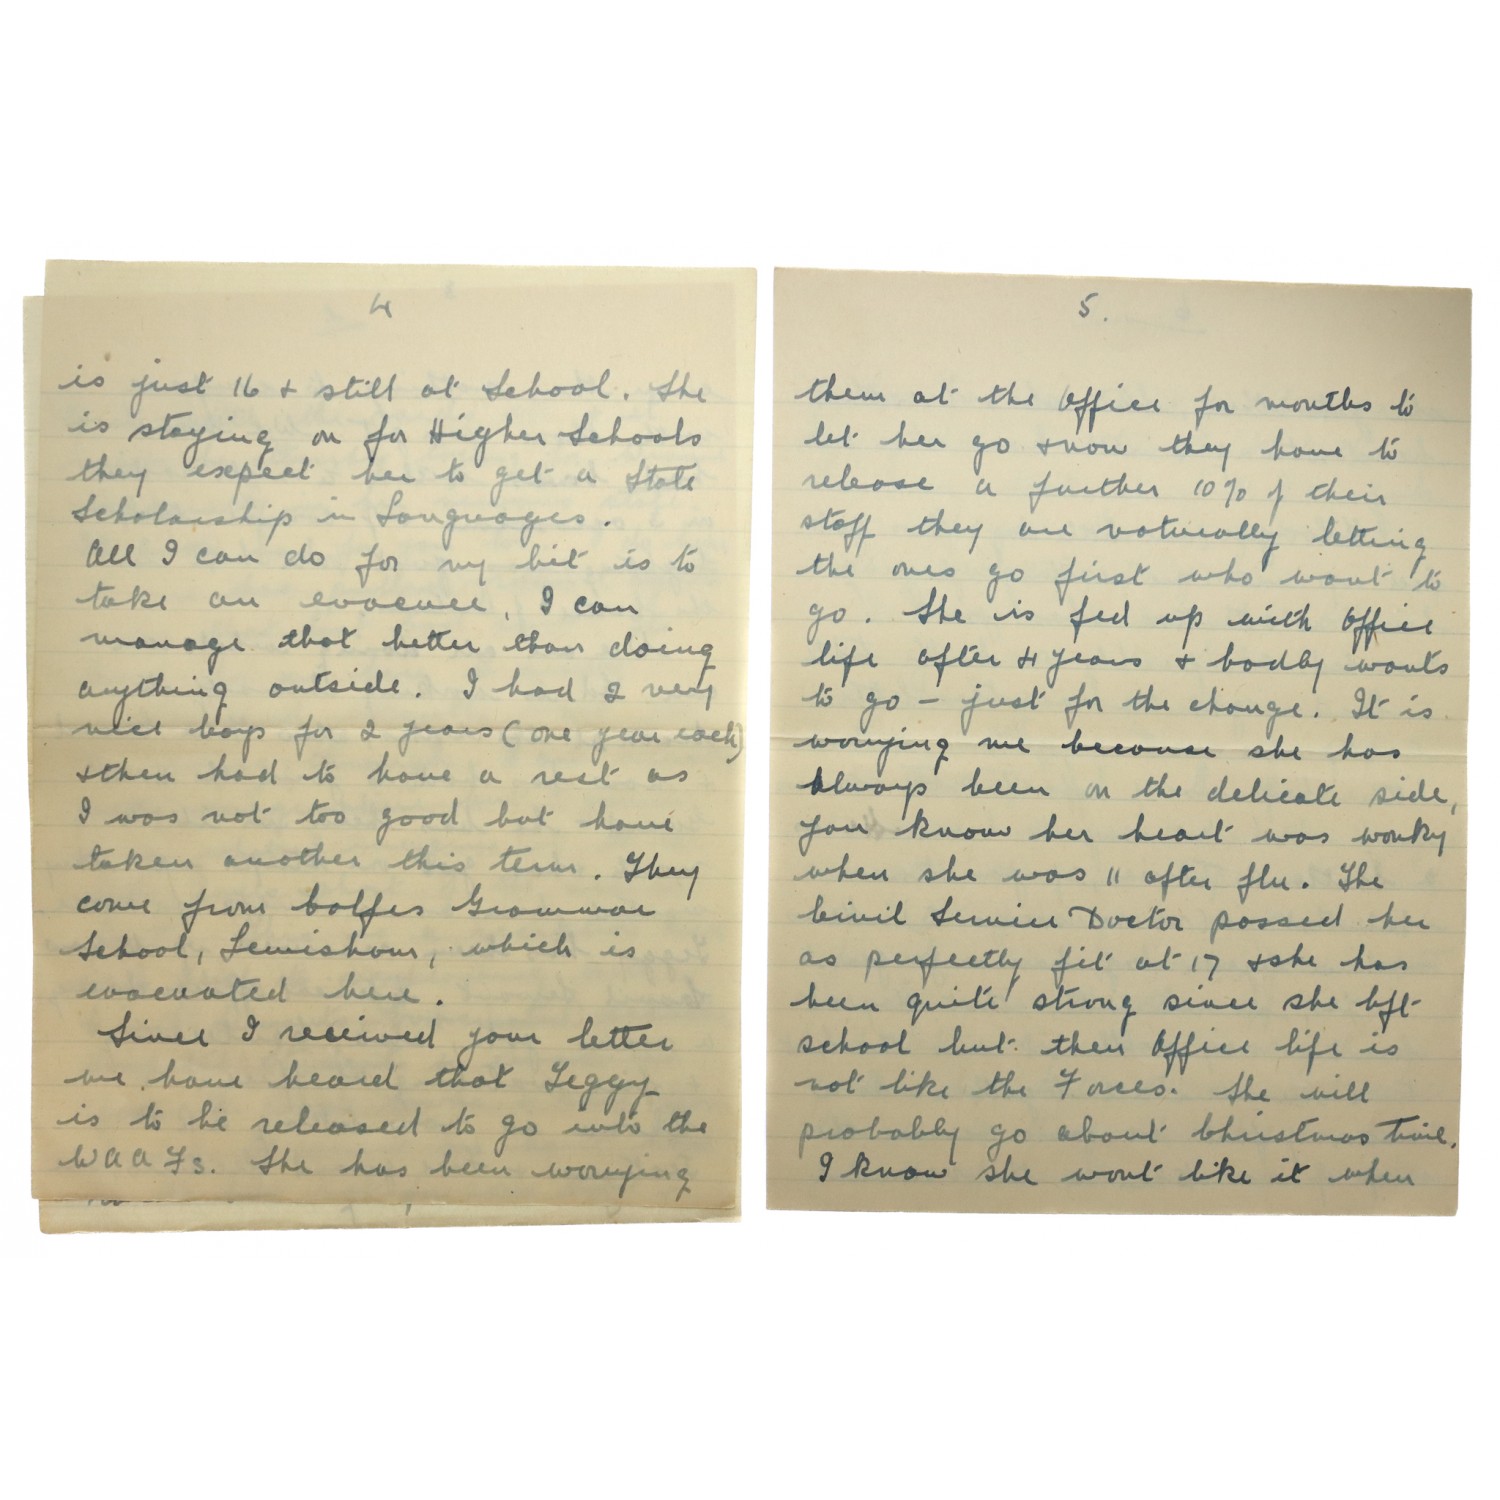 4
is just 16 + still at School. She
is staying on for Higher Schools
they expect her to get a State
Scholarship in Languages.
All I can do for my bit is to
take an evacuee, I can
manage that better than doing
anything outside. I had 2 very
nice boys for 2 years (one year each)
+ then had to have a rest as
I was not too good but have
taken another this term. They
come from Colfes Grammar
School, Lewisham, which is
evacuated here.
Since I received your letter
we have heard that Peggy
is to be released to go into the
WAAFs. She has been worrying
5.
them at the Office for months to
let her go + now they have to
release a further 10% of their
staff they are naturally letting
the ones go first who want to
go. She is fed up with Office
life after 4 years + badly wants
to go – just for the change. It is
worrying me because she has
always been on the delicate side,
you know her heart was wonky
when she was 11 after flu. The
Civil Service Doctor passed her
as perfectly fit at 17 + she has
been quite strong since she left
school but then Office life is
not like the Forces. She will
probably go about Christmas time.
I know she wont like it when